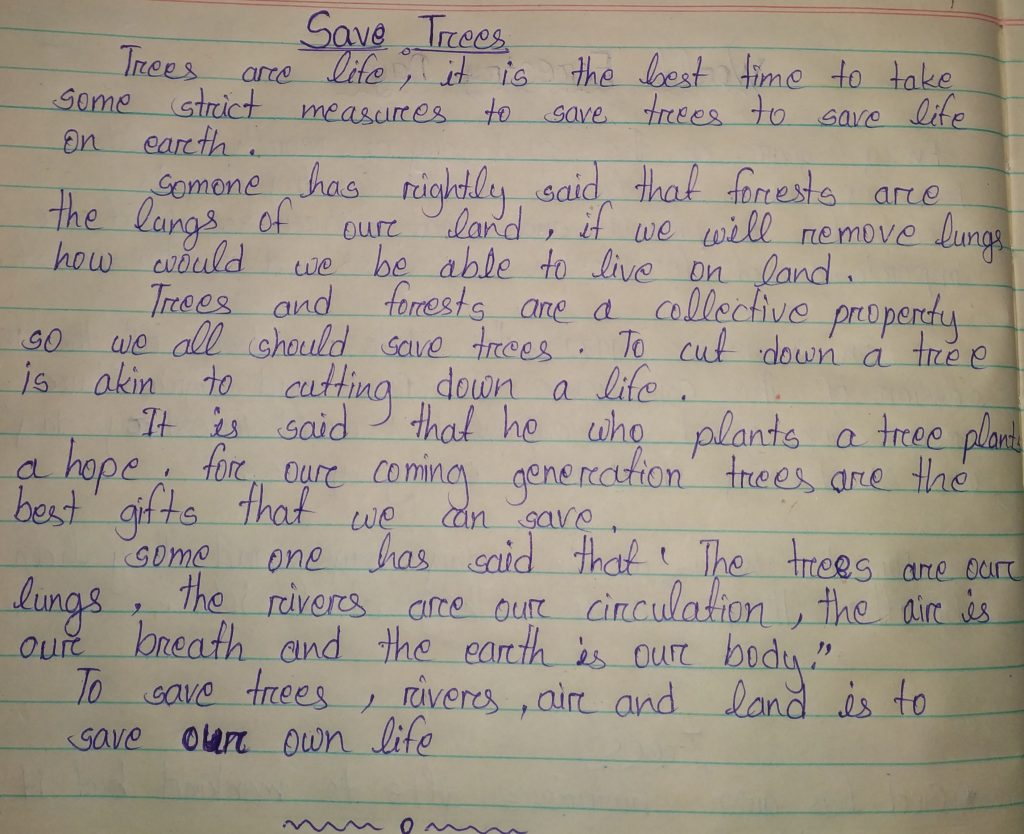 Save Trees
Trees are life, it is the best time to take
some strict measures to save trees to save life
on earth.
Somone has rightly said that forests are
the lungs of our land, if we will remove lungs
how would we be able to live on land.
Trees and forests are a collective property
so we all should save trees. To cut down a tree
is akin to cutting down a life.
It is said that he who plants a tree plants
a hope. for our coming generation trees are the
best gifts that we can save.
some one has said that "The trees are our
lungs, the rivers are our circulation, the air is
our breath and the earth is our body."
To save trees, rivers, air and land is to
save our own life